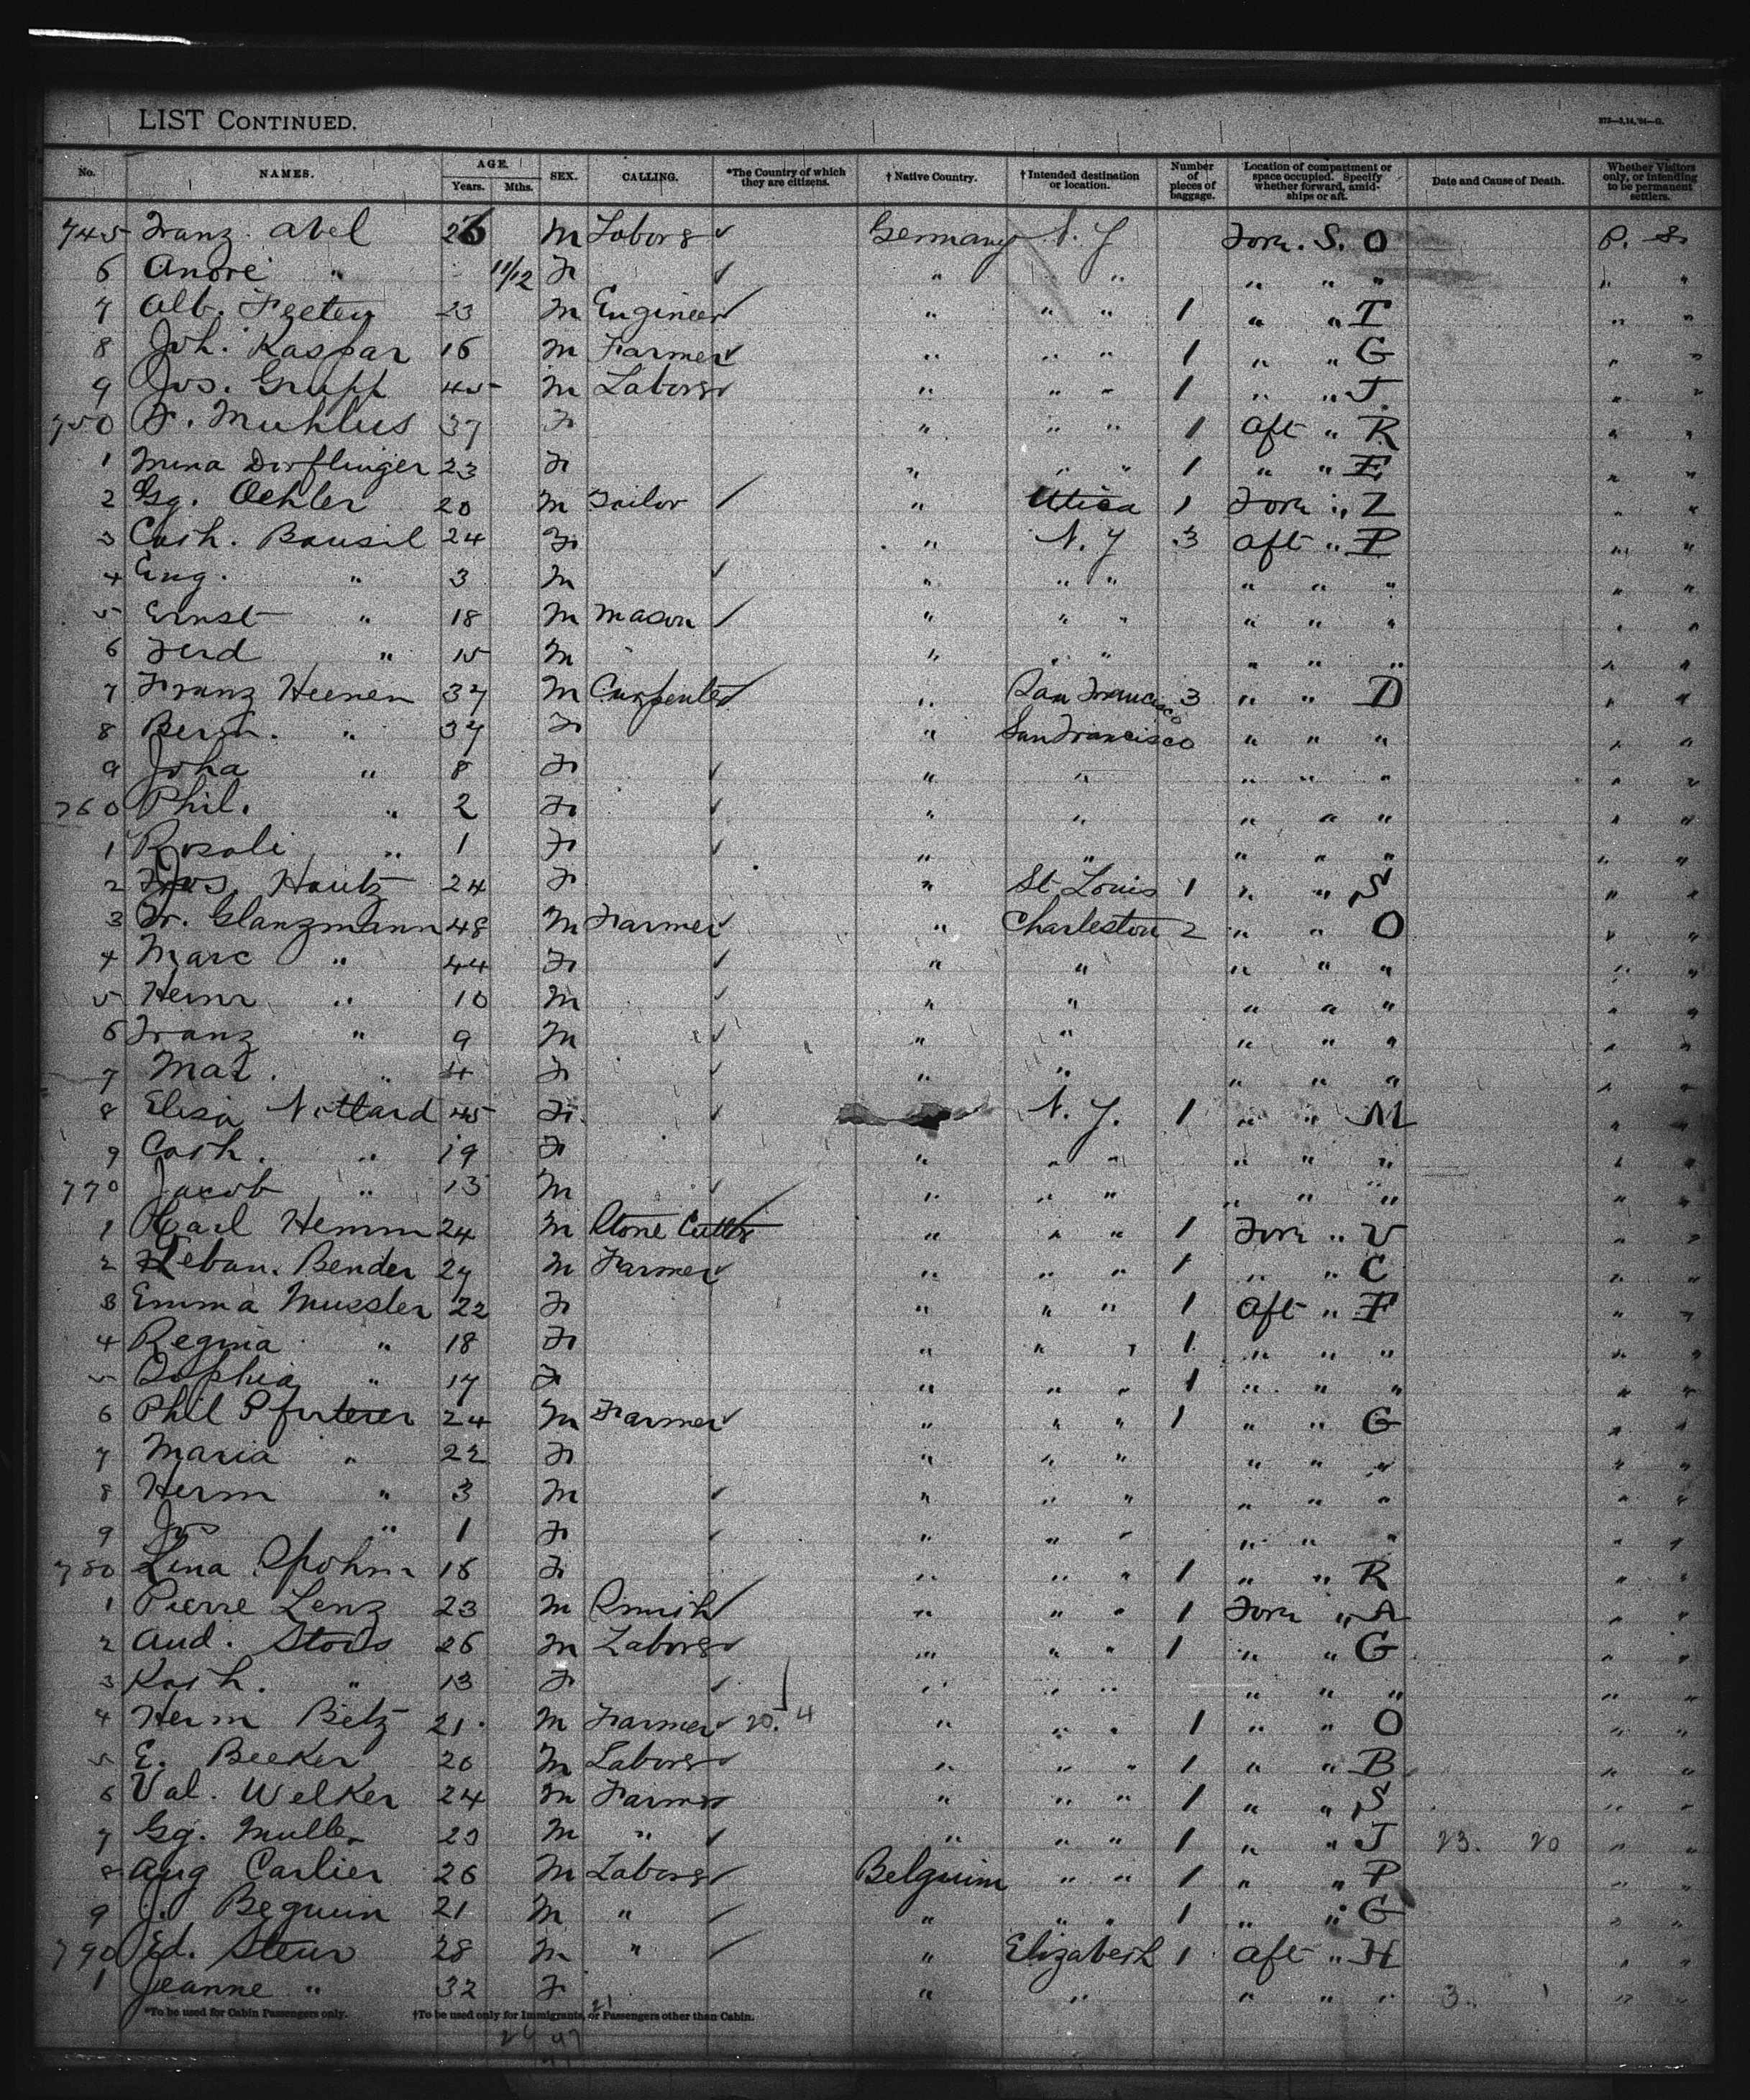 LIST CONTINUED.
No. NAMES. AGE. Years. Mths. SEX. CALLING. *The Country of which they are citizens. †Native Country. †Intended destination or location. Number of pieces of baggage. Location of compartment or space occupied. Specify whether forward, amidships or aft. Date and Cause of Death. Whether Visitors only, or intending to be permanent settlers.
745 Franz Abel 26 M Labors ✓ Germany N. Y Forw. S. O P. S.
6 " 11/12 F ✓ " " " " " " "
7 Alb. 23 M Engineer ✓ " " " 1 " " T " "
8 Joh. Kaspar 16 M Farmer ✓ " " " 1 " " G " "
9 Jos. Grupp 45 M Labors ✓ " " " 1 " " J " "
750 F. Muhlus 37 F " " " 1 Aft " R " "
1 Mina Dorflinger 23 F " " " 1 " " E " "
2 Gg. Oehler 20 M Tailor ✓ " Utica 1 Forw " Z " "
3 Cath. Bausil 24 F " N. Y 3 Aft " P " "
4 Eug. " 3 M ✓ " " " " " " " "
5 Ernst " 18 M Mason ✓ " " " " " " " "
6 Ferd " 15 M " " " " " " " "
7 Franz Heenen 37 M Carpenter ✓ " San Francisco 3 " " D " "
8 " 37 F " San Francisco " " " " "
9 Joha " 8 F ✓ " " " " " " "
760 Phil. " 2 F ✓ " " " " " " "
1 Rosali " 1 F ✓ " " " " " " "
2 Jos. Hautz 24 F " St Louis 1 " " S " "
3 Fr. Glanzmann 48 M Farmer ✓ " Charleston 2 " " O " "
4 Marc " 44 F ✓ " " " " " " "
5 Heinr " 10 M ✓ " " " " " " "
6 Franz " 9 M ✓ " " " " " " "
7 " 4 F ✓ " " " " " " "
8 Elisa 45 F ✓ N. Y. 1 " " M " "
9 Cath. " 19 F " " " " " " " "
770 Jacob " 13 M ✓ " " " " " " " "
1 Karl Hemm 24 M Stone Cutter " " " 1 Forw " V " "
2 Bender 29 M Farmer ✓ " " " 1 " " C " "
3 Emma Mussler 22 F " " " 1 Aft " F " "
4 Regina " 18 F " " " 1 " " " " "
5 Sophia " 17 F " " " 1 " " " " "
6 Phil 24 M Farmer ✓ " " " 1 " " G " "
7 Maria " 22 F " " " " " " " "
8 Herm " 3 M ✓ " " " " " " " "
9 Jos " 1 F ✓ " " " " " " " "
780 Lina Spohn 16 F " " " 1 " " R " "
1 Pierre Lenz 23 M Smith ✓ " " " 1 Forw " A " "
2 And. 26 M Labors ✓ " " " 1 " " G " "
3 Kath. " 13 F ✓ " " " " " " " "
4 Herm Betz 21 M Farmer ✓ 20. 4 " " " 1 " " O " "
5 E. Becker 20 M Labors ✓ " " " 1 " " B " "
6 Val. Welker 24 M Farmer ✓ " " " 1 " " S " "
7 Gg. Muller M " ✓ " " " 1 " " J 23. 20 " "
8 Aug Carlier 26 M Labors ✓ Belguim " " 1 " " P " "
9 J. Beguin 21 M " ✓ " " " 1 " " G " "
790 Ed. Steur 28 M " ✓ " Elizabeth 1 Aft " H " "
1 Jeanne " 32 F " " " " " 3. 1 " "
*To be used for Cabin Passengers only. †To be used only for Immigrants, or Passengers other than Cabin.